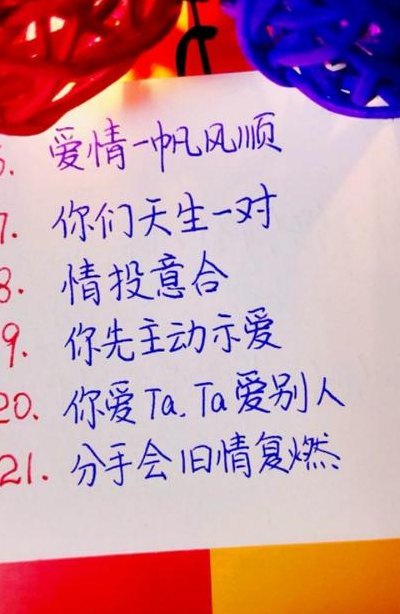 6. 爱情一帆风顺
7. 你们天生一对
8. 情投意合
9. 你先主动示爱
20. 你爱Ta.Ta爱别人
21. 分手会旧情复燃